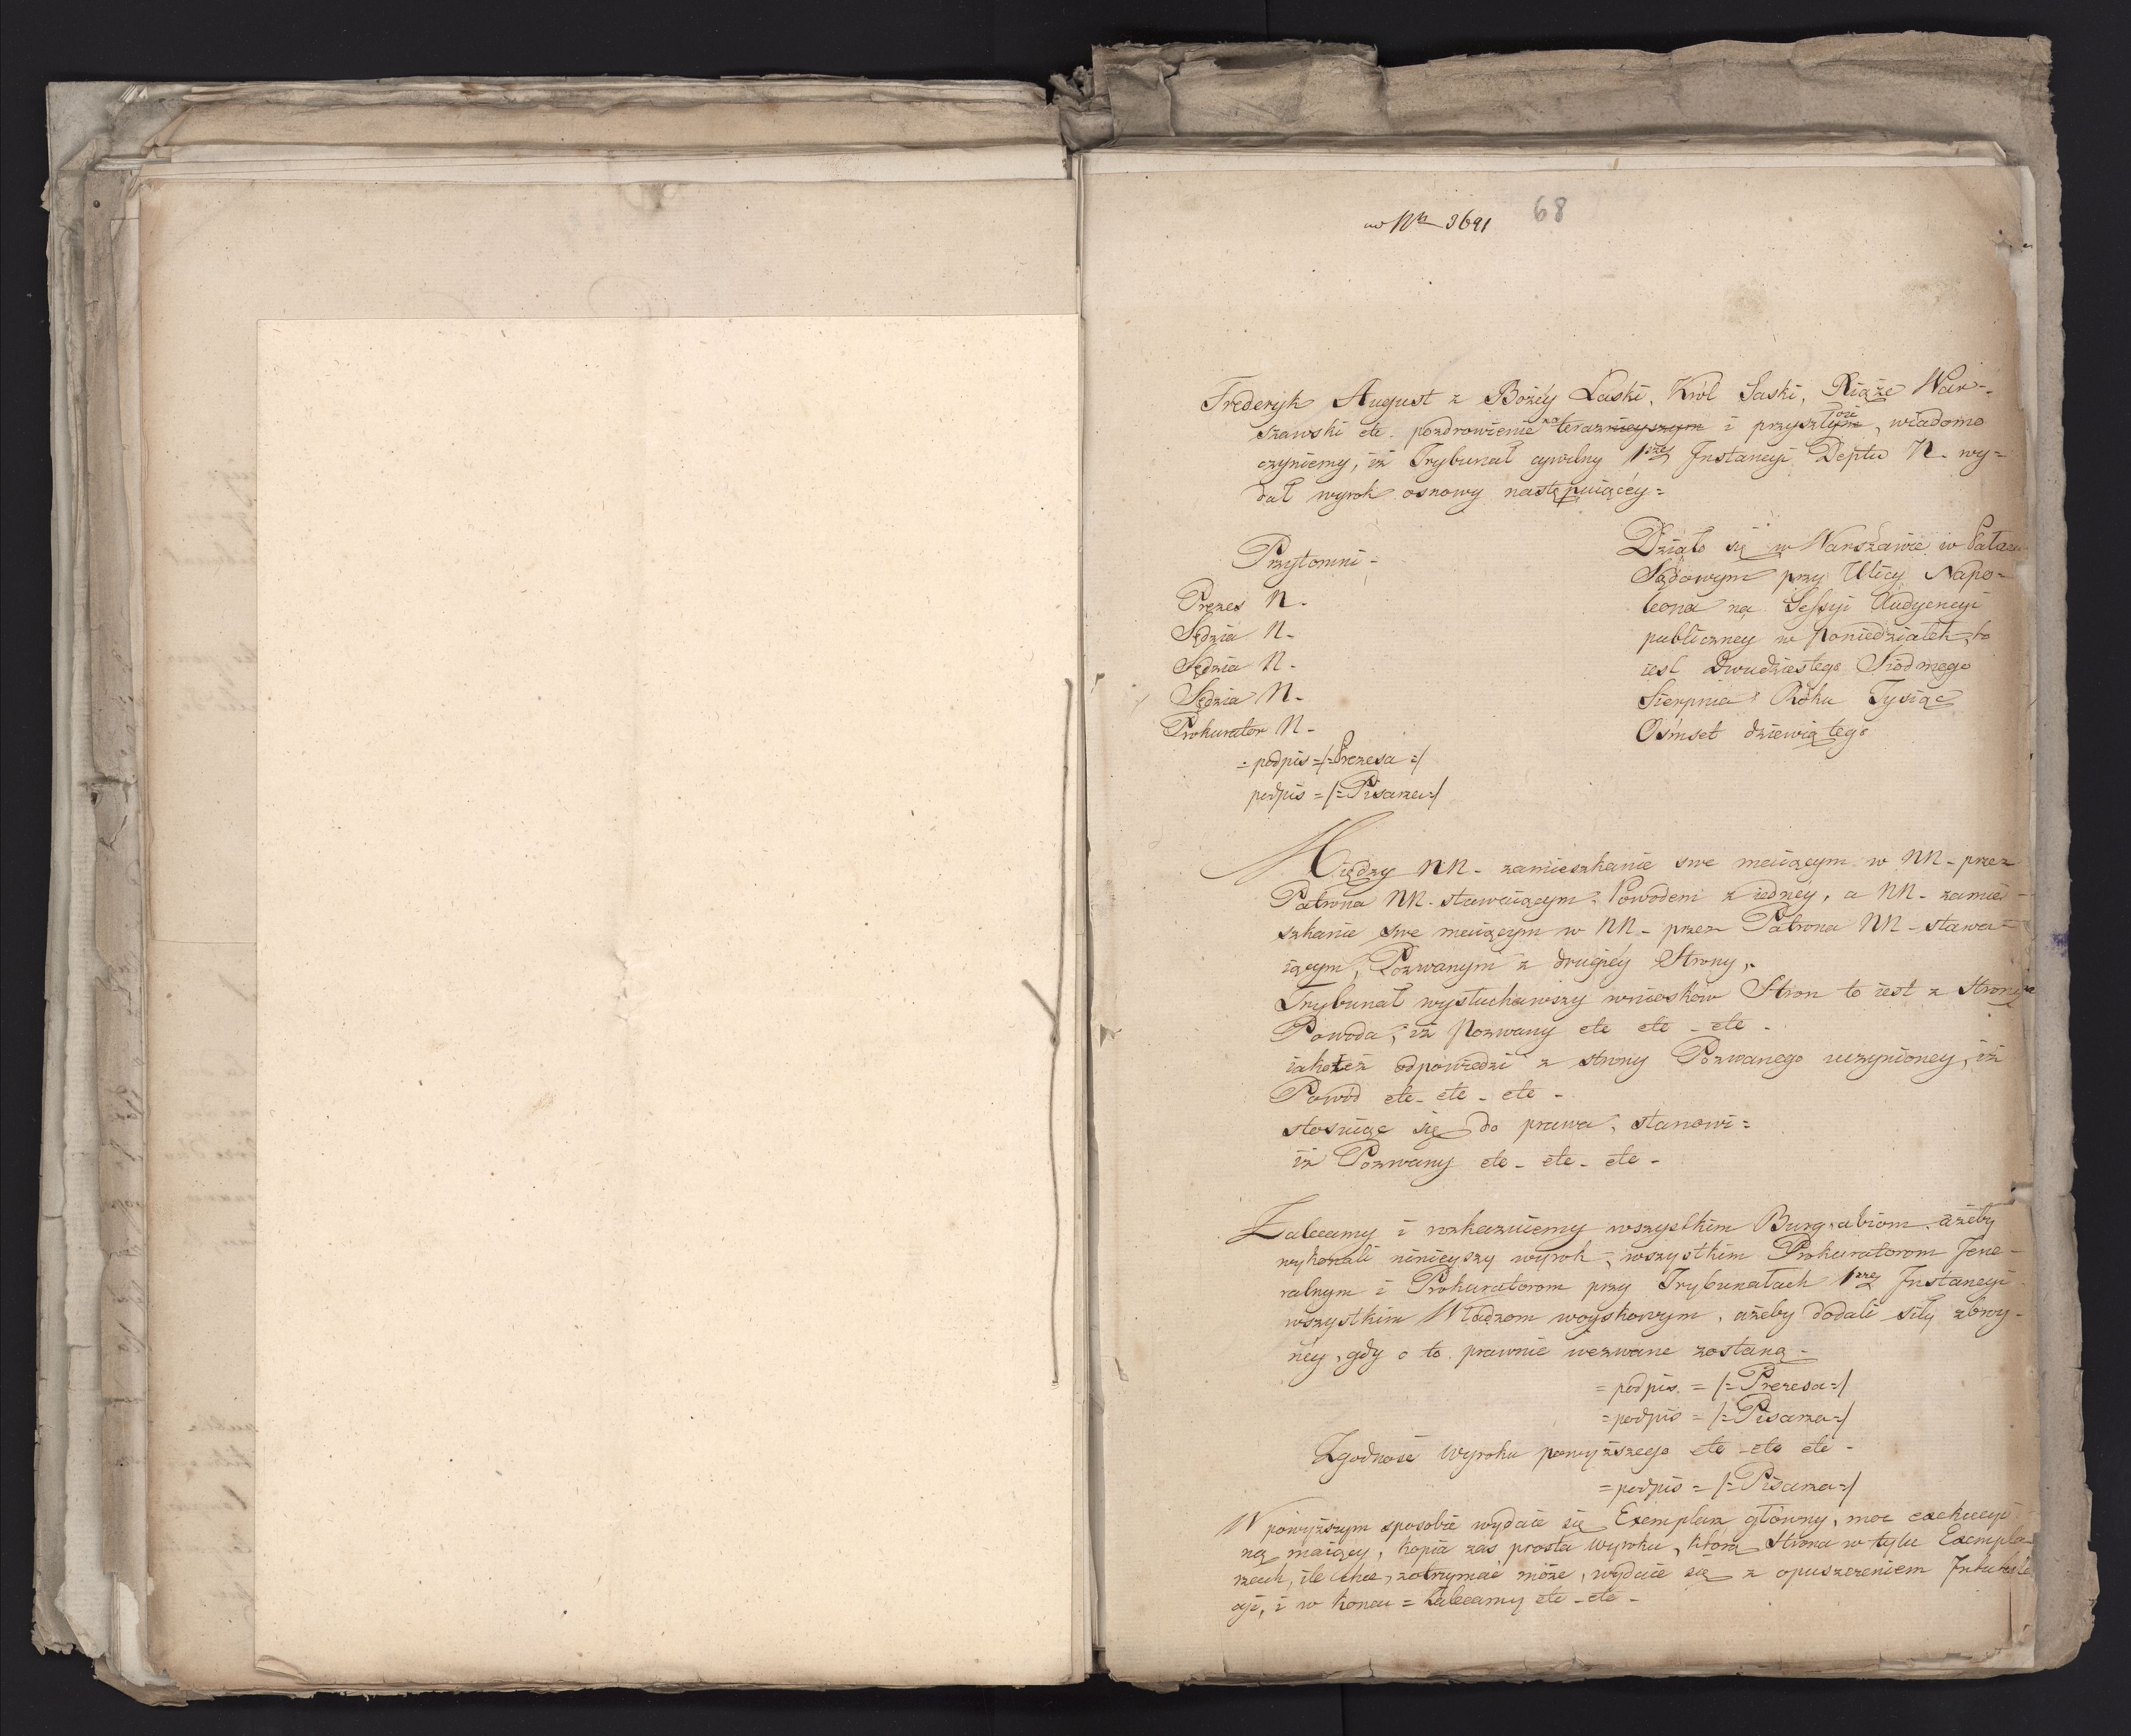 ad Nr 3691
68
Frederyk August z Bożéy Łaski, Król Saski, Xiąże War-
szawski etc. pozdrowienie na teraznieyszym i przyszłym, wiadomo
czyniemy, iż Trybunał cywilny 1szey Instancyi Deptu N. wy=
dał wyrok osnowy następuiącéy=
Przytomni -
Prezes N.
Sędzia N.
Sędzia N.
Sędzia N.
Prokurator N.
= podpis =/=Prezesa=/
podpis =/=Pisarza=/
Działo się w Warszawie w Pałacu
Sądowym przy Ulicy Napo=
leona na Sessyi Audyencyi
publiczney w Poniedziałek, to
iest Dwudziestego Siódmego
Sierpnia Roku Tysiąc
Osmset dziewiątego
Między NN. zamieszkanie swe maiącym w NN. przez
Patrona NN. stawaiącym Powodem z iedney, a NN. zamie-
szkanie swe maiącym w NN. przez Patrona NN. stawa=
iącym, Pozwanym z drugiéy Strony,
Trybunał wysłuchawszy wniosków Stron to iest z Strony
Powoda, iż Pozwany etc etc - etc -
iakoteż odpowiedzi z strony Pozwanego uczynioney, iż
Powód etc - etc - etc -
stosuiąc się do prawa, stanowi=
iż Pozwany etc - etc - etc -
Zalecamy i rozkazuiemy wszystkim Burgrabiom ażeby
wykonali ninieyszy wyrok, wszystkim Prokuratorom Jene-
ralnym i Prokuratorom przy Trybunałach 1szey Instancyi
wszystkim Władzom woyskowym, ażeby dodali siły zbroy-
néy, gdy o to prawnie wezwane zostaną -
= podpis = /=Prezesa=/
= podpis = /=Pisarza=/
Zgodność Wyroku powyższego etc - etc etc -
= podpis = /=Pisarza=/
W powyższym sposobie wydaie się Exemplarz główny, moc exekucyi
ną maiący, kopia zaś prosta Wyroku, którą Strona w tylu Exempla-
rzach, ile chce, otrzymać może, wydaie się z opuszczeniem
i w końcu = Zalecamy etc - etc -